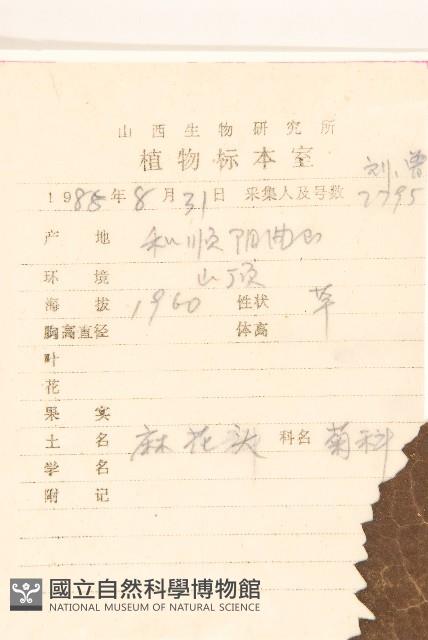 山西生物研究所
植物标本室
刘、曾
1985年8月31日 采集人及号数 2795
产地 和顺阳曲山
环境 山顶
海拔 1960 性状 草
胸高直径 体高
叶
花
果实
土名 麻花头 科名 菊科
学名
附记
國立自然科學博物館
NATIONAL MUSEUM OF NATURAL SCIENCE